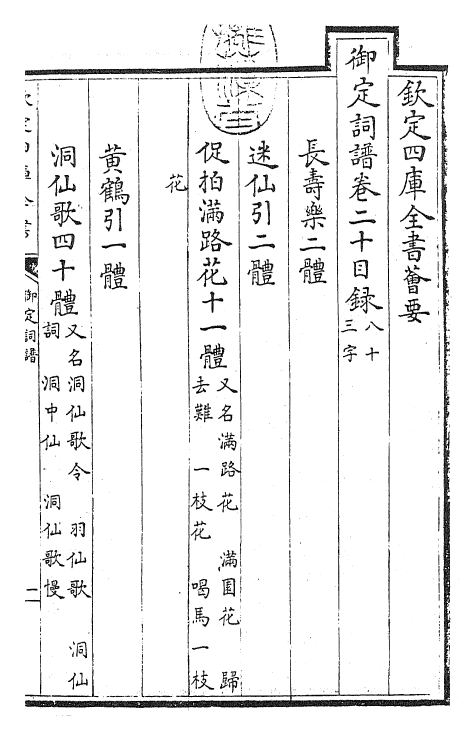 欽定四庫全書薈要
御定詞譜卷二十目録 八十三字
長壽樂二體
迷仙引二體
促拍滿路花十一體 又名滿路花 滿園花 歸去難 一枝花 喝馬一枝
花
黃鶴引一體
洞仙歌四十體 又名洞仙歌令 羽仙歌 洞仙詞 洞中仙 洞仙歌慢
御定詞譜